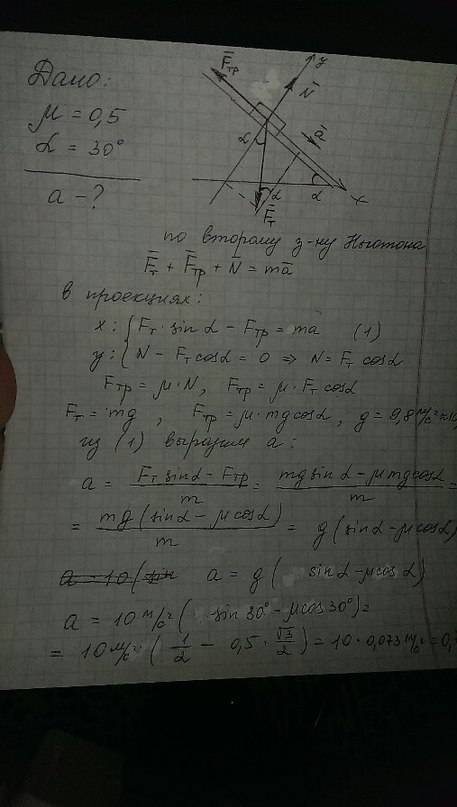 Дано:
μ = 0,5
α = 30°
a - ?
F̄тр
y
N̄
ā
α
α
α
x
F̄т
по второму з-ну Ньютона
F̄т + F̄тр + N̄ = mā
в проекциях:
x: { Fт · sin α - Fтр = ma (1)
y: { N - Fт cos α = 0 ⇒ N = Fт cos α
Fтр = μ · N, Fтр = μ · Fт cos α
Fт = mg, Fтр = μ · mg cos α, g = 9,8 м/с² ≈ 10
из (1) выразим a:
a = (Fт sin α - Fтр)/m = (mg sin α - μ mg cos α)/m =
= mg (sin α - μ cos α)/m = g (sin α - μ cos α)
a = 10 (sin a = g ( sin α - μ cos α)
a = 10 м/с² ( sin 30° - μ cos 30°) =
= 10 м/с² (1/2 - 0,5 · √3/2) = 10 · 0,073 м/с² = 0,